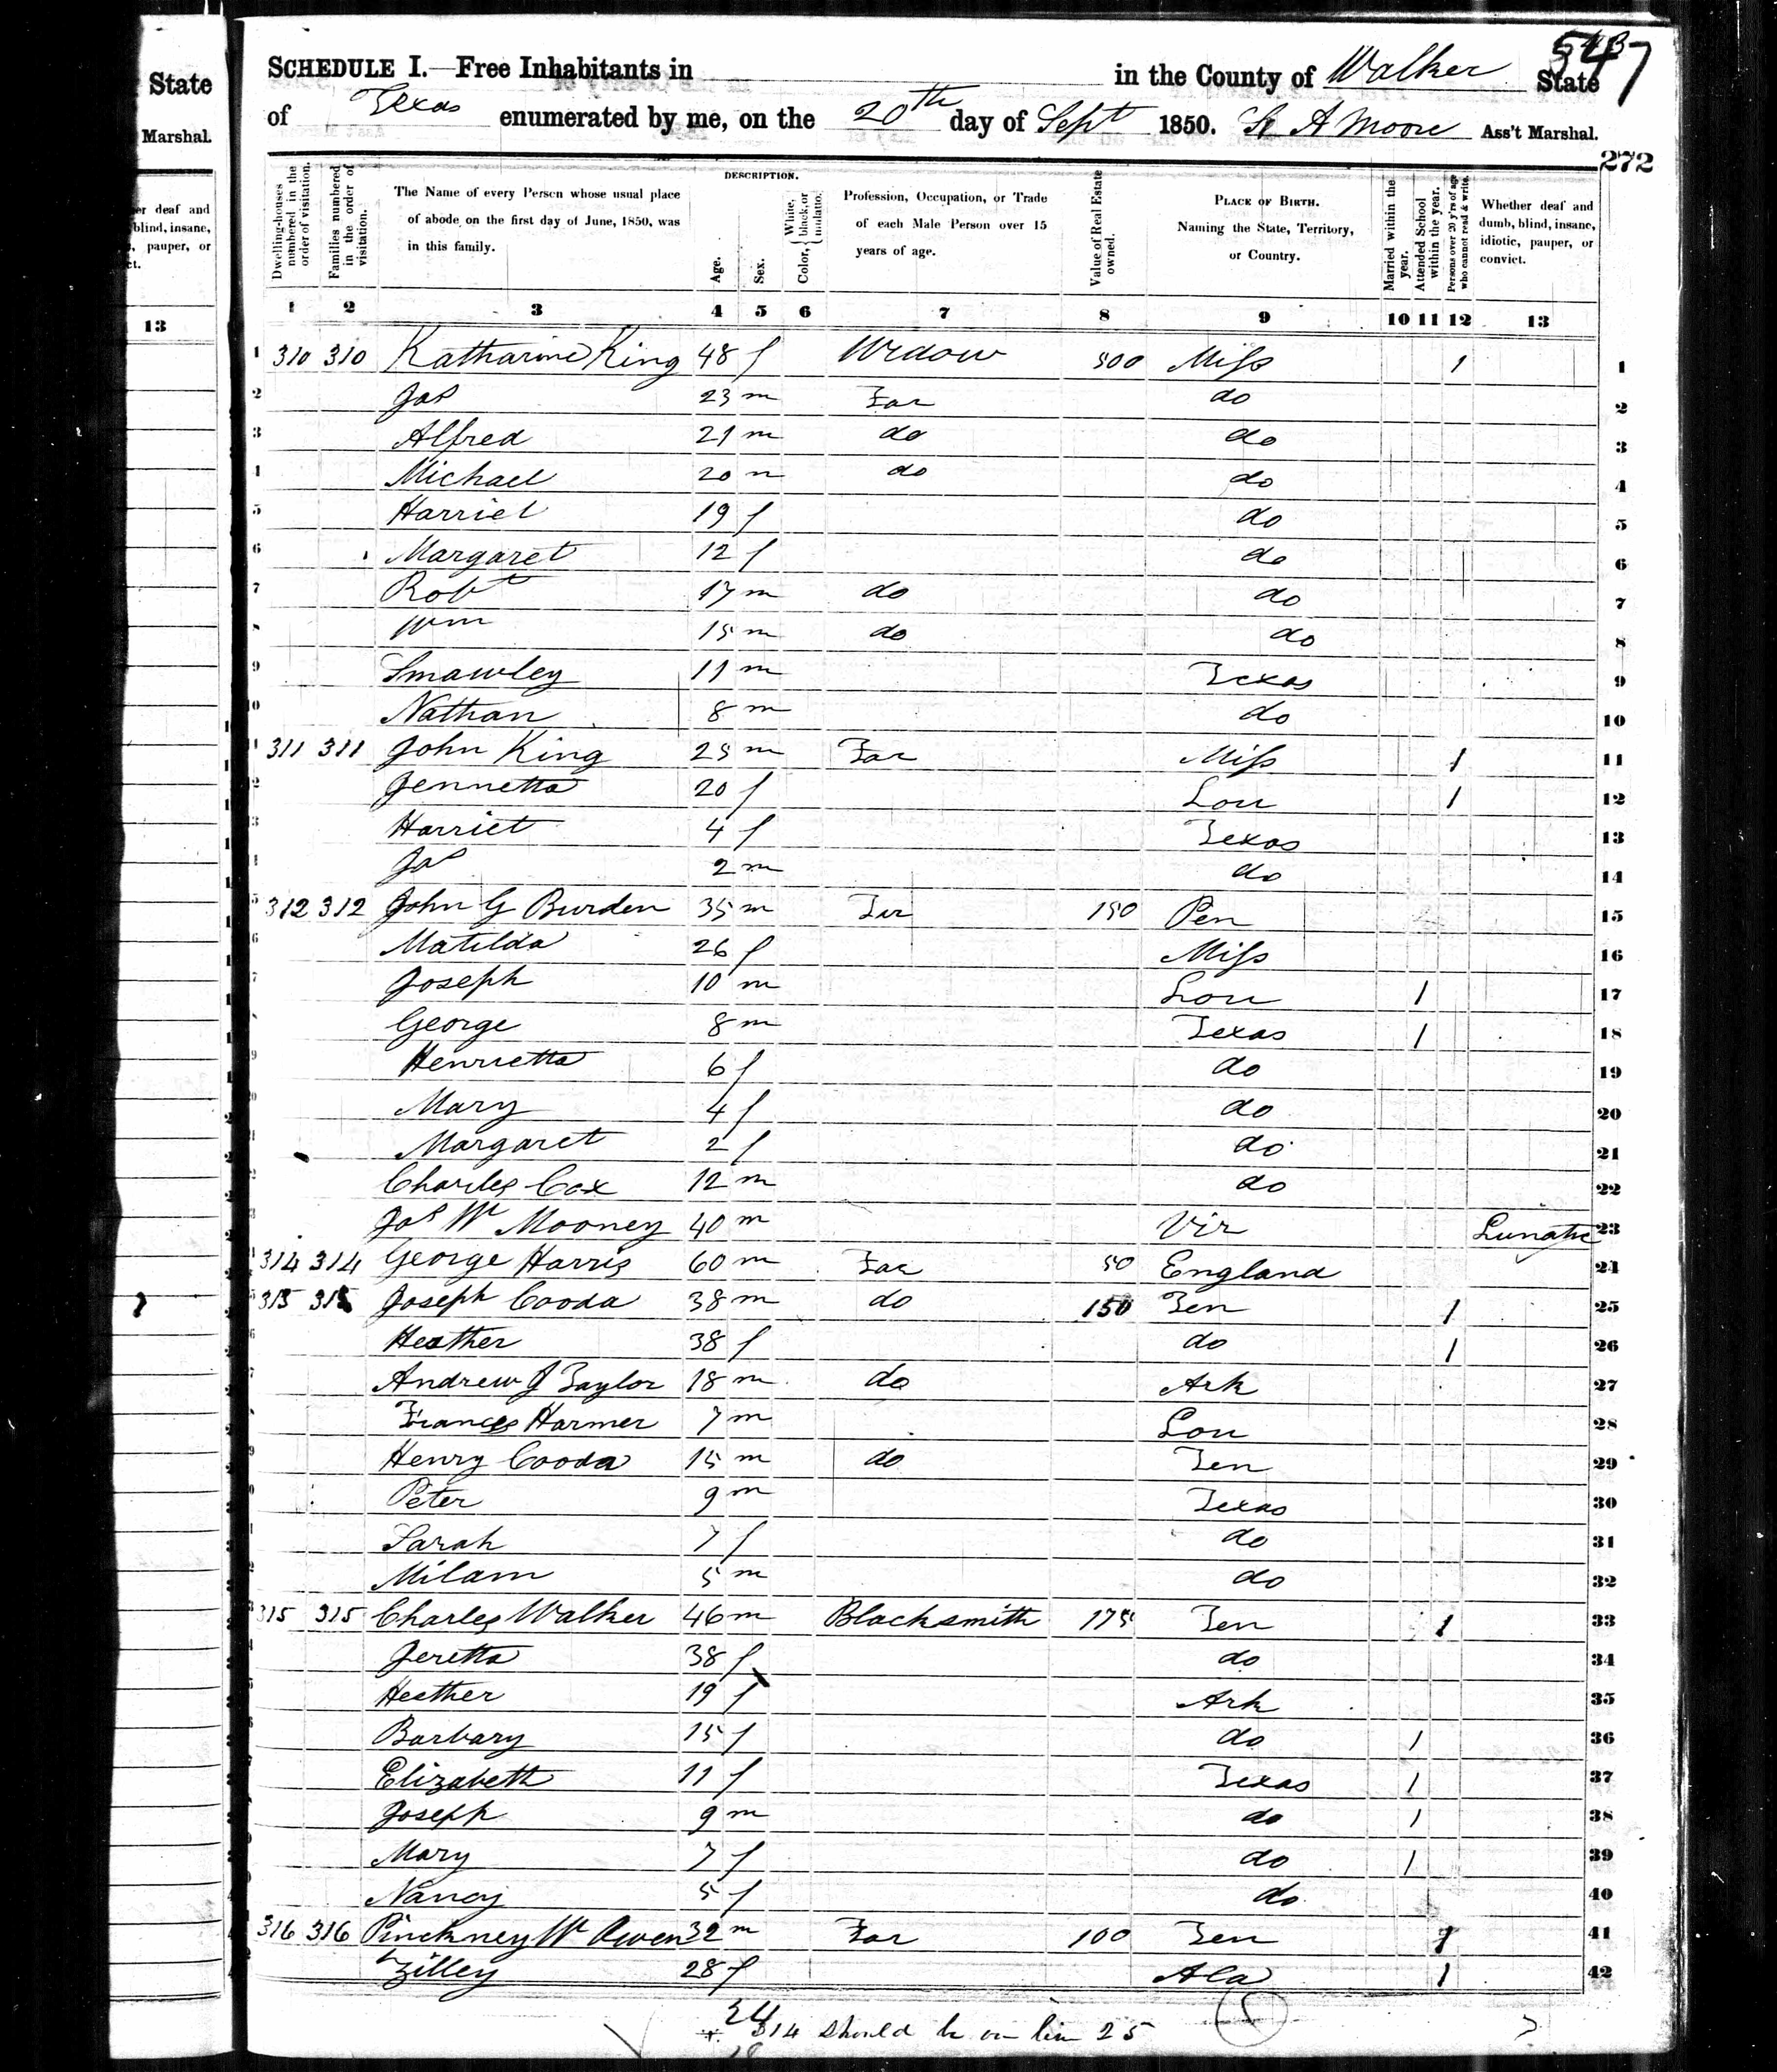 State
Marshal.
er deaf and
blind, insane,
pauper, or
ct.
13
547
SCHEDULE I.—Free Inhabitants in in the County of Walker State
of Texas enumerated by me, on the 20th day of Sept 1850. A Moore Ass't Marshal.
272
DESCRIPTION.
Dwelling-houses numbered in the order of visitation.
Families numbered in the order of visitation.
The Name of every Person whose usual place of abode on the first day of June, 1850, was in this family.
Age.
Sex.
Color, { White, black, or mulatto.
Profession, Occupation, or Trade of each Male Person over 15 years of age.
Value of Real Estate owned.
PLACE OF BIRTH. Naming the State, Territory, or Country.
Married within the year.
Attended School within the year.
Persons over 20 y'rs of age who cannot read & write.
Whether deaf and dumb, blind, insane, idiotic, pauper, or convict.
1 2 3 4 5 6 7 8 9 10 11 12 13
1 310 310 Katharine King 48 f Widow 500 Miss 1 1
2 Jas 23 m Far do 2
3 Alfred 21 m do do 3
4 Michael 20 m do do 4
5 Harriet 19 f do 5
6 Margaret 12 f do 6
7 Robt 17 m do do 7
8 Wm 15 m do do 8
9 Smawley 11 m Texas 9
10 Nathan 8 m do 10
11 311 311 John King 25 m Far Miss 1 11
12 Jennetta 20 f Lou 1 12
13 Harriet 4 f Texas 13
14 Jas 2 m do 14
15 312 312 John G Burden 35 m Far 150 Pen 15
16 Matilda 26 f Miss 16
17 Joseph 10 m Lou 1 17
18 George 8 m Texas 1 18
19 Henrietta 6 f do 19
20 Mary 4 f do 20
21 Margaret 2 f do 21
22 Charles Cox 12 m do 22
23 Jas W Mooney 40 m Vir Lunatic 23
24 314 314 George Harris 60 m Far 50 England 24
25 315 315 Joseph Cooda 38 m do 150 Ten 1 25
26 Heather 38 f do 1 26
27 Andrew J Taylor 18 m do Ark 27
28 Frances Harmer 7 m Lou 28
29 Henry Cooda 15 m do Ten 29
30 Peter 9 m Texas 30
31 Sarah 7 f do 31
32 Milam 5 m do 32
33 315 315 Charles Walker 46 m Blacksmith 175 Ten 1 33
34 Jeretta 38 f do 34
35 Heather 19 f Ark 35
36 Barbary 15 f do 1 36
37 Elizabeth 11 f Texas 1 37
38 Joseph 9 m do 1 38
39 Mary 7 f do 1 39
40 Nancy 5 f do 40
41 316 316 Pinckney W Owen 32 m Far 100 Ten 1 41
42 Zilley 28 f Ala 1 42
314 should be on line 25